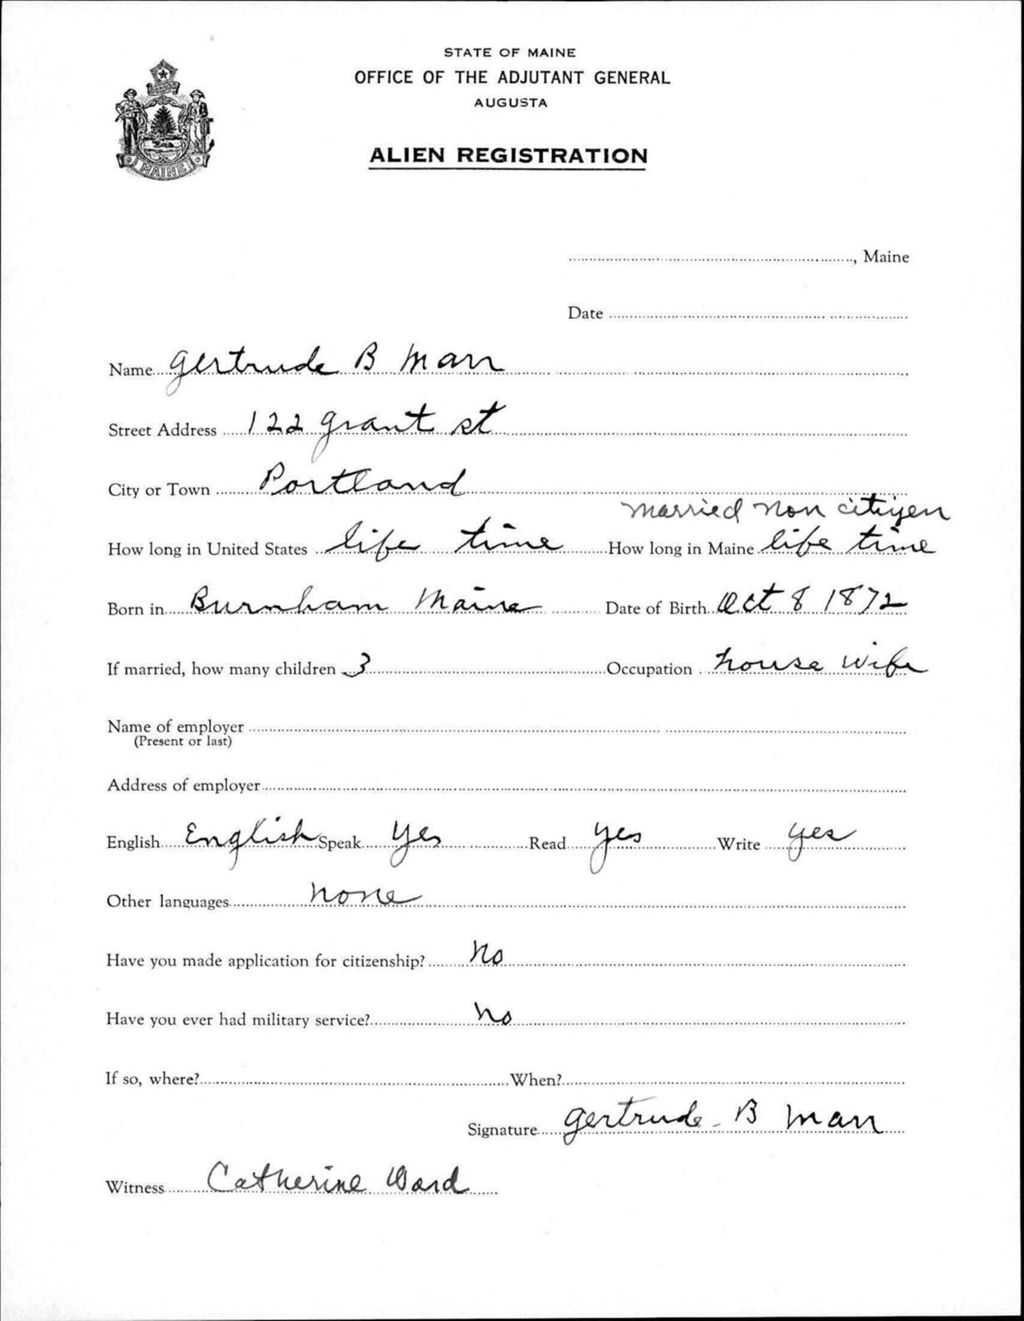 STATE OF MAINE
OFFICE OF THE ADJUTANT GENERAL
AUGUSTA
ALIEN REGISTRATION
MAINE
, Maine
Date
Name Gertrude B Marr
Street Address 122 Grant st
City or Town Portland
married non citizen
How long in United States life time How long in Maine life time
Born in Burnham Maine Date of Birth Oct 8 1872
If married, how many children 3 Occupation house wife
Name of employer
(Present or last)
Address of employer
English English Speak yes Read yes Write yes
Other languages none
Have you made application for citizenship? no
Have you ever had military service? no
If so, where? When?
Signature Gertrude B Marr
Witness Catherine Ward